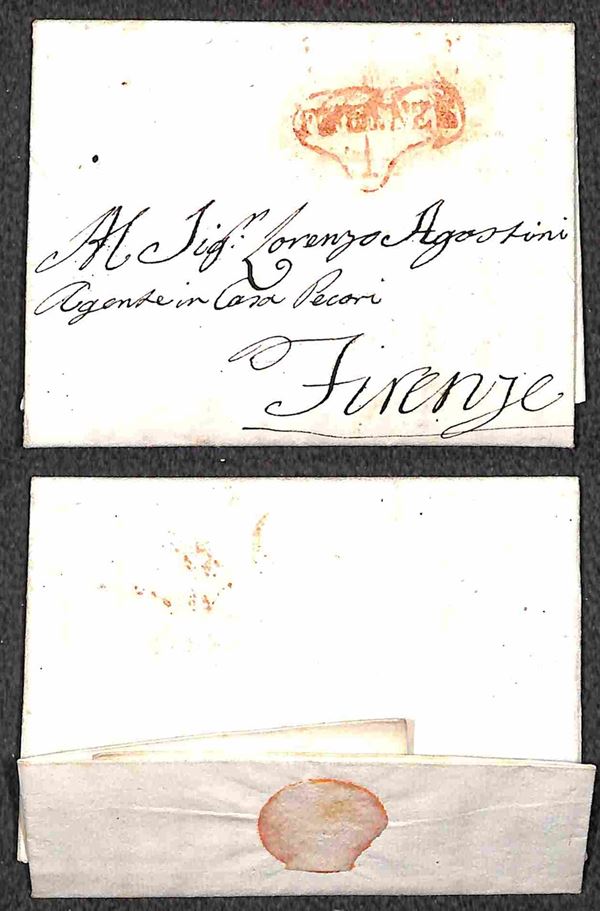 Al Sigr. Lorenzo Agostini
Agente in Casa Pecori
Firenze